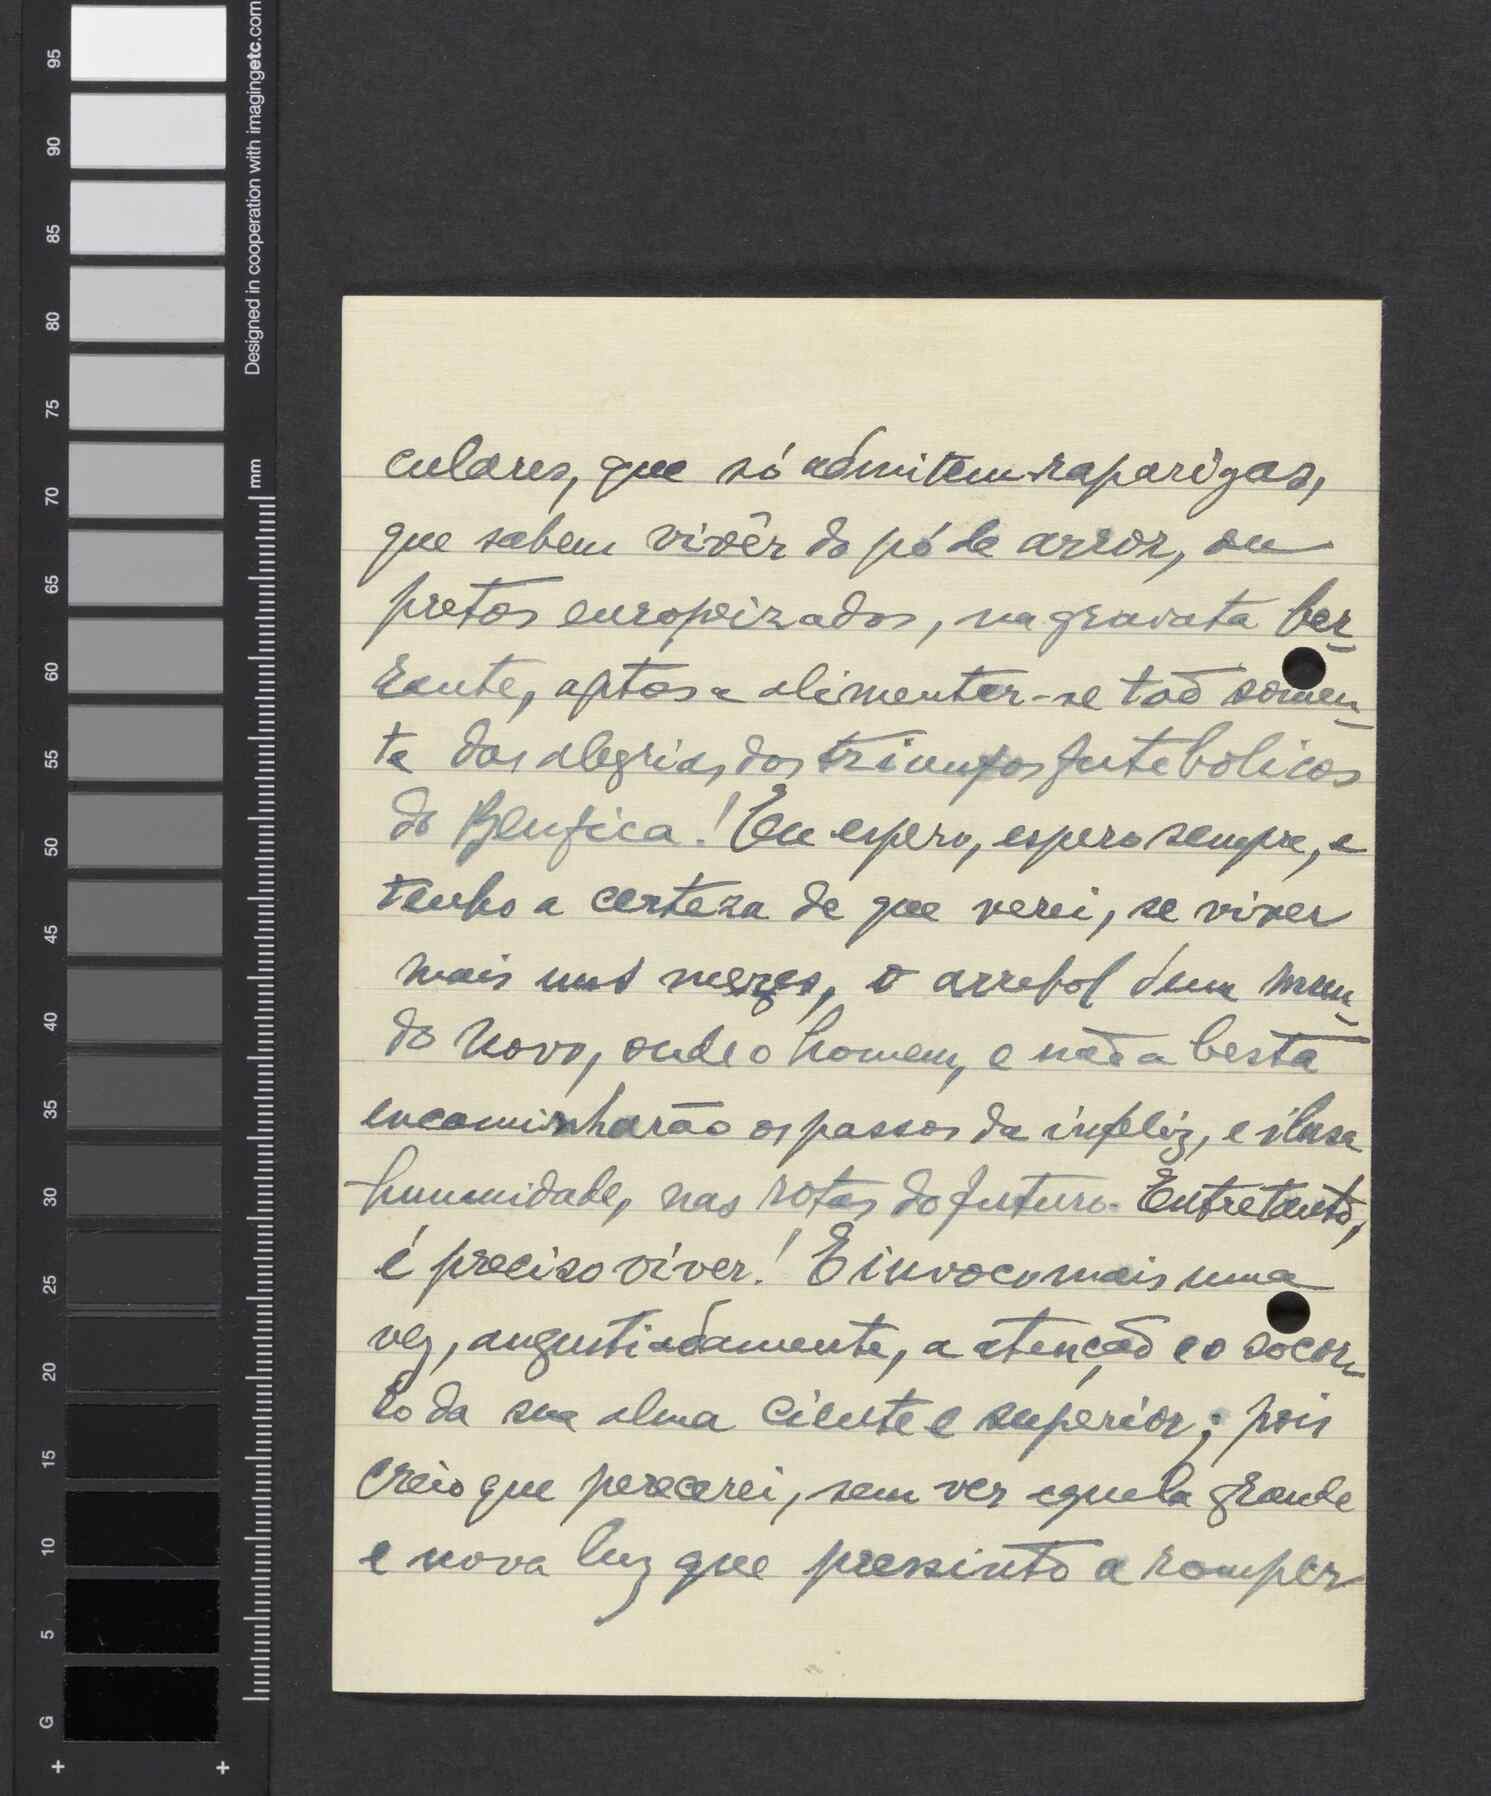 95
90
85
80
75
70
65
60
55
50
45
40
35
30
25
20
15
10
5
G
Designed in cooperation with imagingetc.com
mm
culares, que só admitem raparigas,
que sabem vivêr do pó de arroz, ou
pretos europeizados, na gravata ber-
rante, aptos a alimentar-se tão somen-
te das alegrias dos triunfos futebolicos
do Benfica! Eu espero, espero sempre, e
tenho a certeza de que verei, se viver
mais uns mezes, o arrebol d'um mun-
do novo, onde o homem, e não a besta
encaminharão os passos da infeliz, e ilusa
humanidade, nas rotas do futuro. Entretanto,
é preciso viver! E invoco mais uma
vez, angustiadamente, a atenção e o socor-
ro da sua alma ciente e superior; pois
creio que perecerei, sem ver aquela grande
e nova luz que pressinto a romper